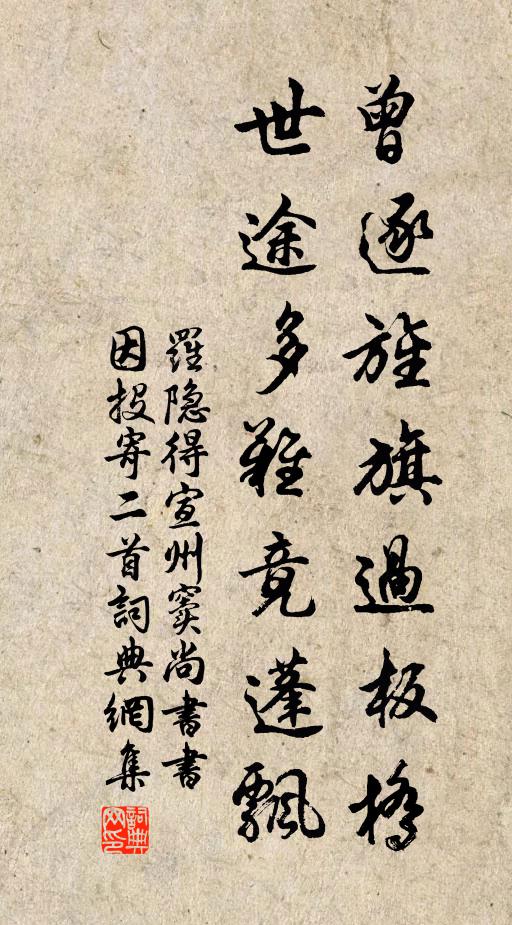 曾逐旌旗過板橋
世途多難竟蓬飄
羅隐得宣州窦尚書書
因投寄二首詞典網集
詞典
网印